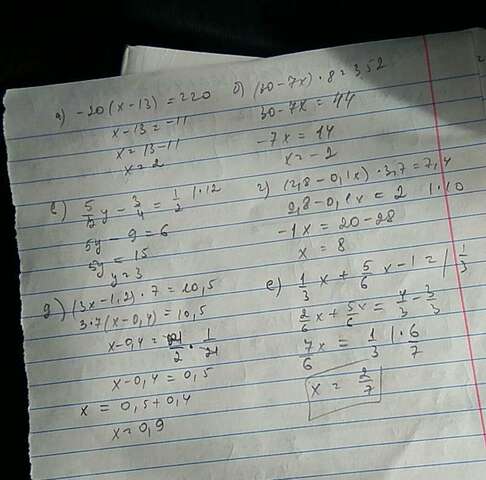 а) -20(x-13) = 220
x-13 = -11
x = 13-11
x = 2
б) (30-7x)·8 = 352
30-7x = 44
-7x = 14
x = -2
в) 5/12 y - 3/4 = 1/2 |·12
5y - 9 = 6
5y = 15
y = 3
г) (2,8-0,1x)·3,7 = 7,4
2,8-0,1x = 2 |·10
-1x = 20-28
x = 8
д) (3x-1,2)·7 = 10,5
3·7(x-0,4) = 10,5
x-0,4 = 21/2 · 1/21
x-0,4 = 0,5
x = 0,5+0,4
x = 0,9
е) 1/3 x + 5/6 x - 1 = 1 1/3
2/6 x + 5/6 x = 4/3 - 3/3
7/6 x = 1/3 |·6/7
x = 2/7